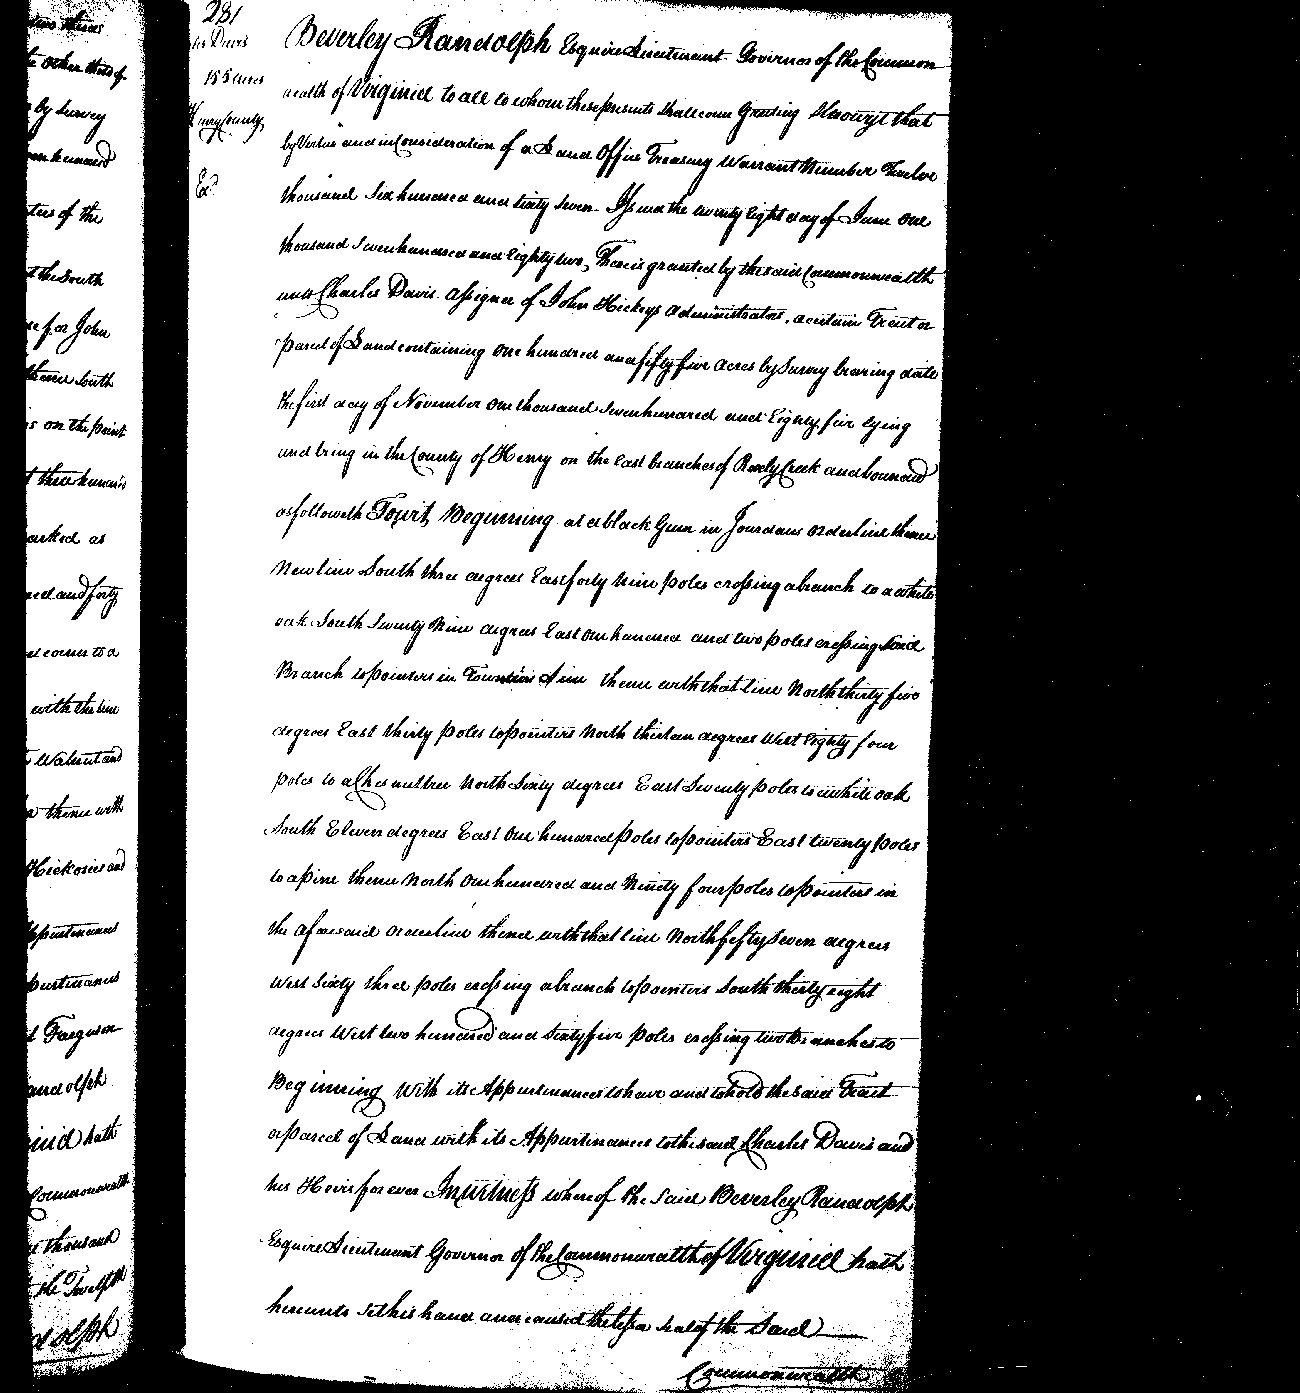 two thirds
the other third of
by Survey
one hundred
ters of the
the South
for John
thence South
s on the point
three hundred
marked as
and forty
corner to a
with the line
Walnut and
thence with
Hickories and
Appurtenances
purtenances
Ferguson
Randolph
hath
Commonwealth
thousand
the Twelfth
dolph
281
Davis
155 acres
Henry County
Ex.d
Beverley Randolph Esquire Lieutenant Governor of the Common
wealth of Virginia to all to whom these presents shall come Greeting Know ye that
by Virtue and in Consideration of a Land Office Treasury Warrant Number Twelve
thousand Six hundred and sixty seven Issued the twenty eight day of June One
thousand Seven hundred and Eighty two, There is granted by the said Commonwealth
unto Charles Davis Assignee of John Hickeys Administrator, a certain Tract or
parcel of Land containing One hundred and fifty five Acres by Survey bearing date
the first day of November One thousand Seven hundred and Eighty five lying
and being in the County of Henry on the East branches of Reedy Creek and bounded
as followeth Towit Beginning at a black Gum in Jourdans Order line thence
New line South three degrees East forty Nine poles crossing a branch to a white
oak South Seventy Nine degrees East One hundred and two poles crossing said
Branch to pointers in line thence with that line North thirty five
degrees East thirty poles to pointers North thirteen degrees West Eighty four
poles to a Chesnuttree North Sixty degrees East Seventy poles to a white oak
South Eleven degrees East One hundred poles to pointers East twenty poles
to a pine thence North One hundred and Ninety four poles to pointers in
the aforesaid order line thence with that line North fifty Seven degrees
West Sixty three poles crossing a branch to pointers South thirty eight
degrees West two hundred and Sixty five poles crossing two Branches to
Beginning With its Appurtenances to have and to hold the said Tract
or parcel of Land with its Appurtenances to the said Charles Davis and
his Heirs forever In witness whereof the said Beverley Randolph
Esquire Lieutenant Governor of the Commonwealth of Virginia hath
hereunto Set his hand and caused the lesser Seal of the Said
Commonwealth